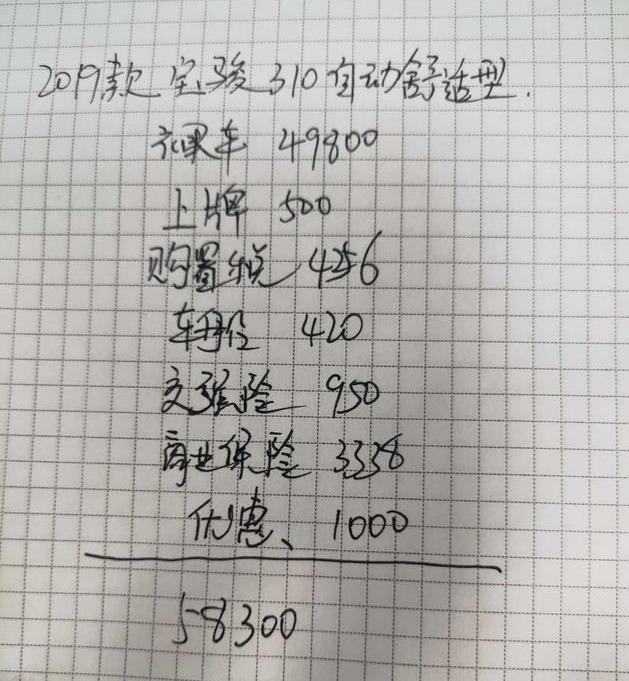 2019款 宝骏310自动舒适型.
裸车 49800
上牌 500
购置税 4256
车船 420
交强险 950
商业保险 3358
优惠、1000
58300